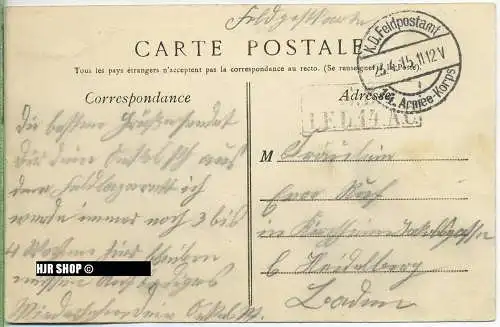 Feldpostkarte
CARTE POSTALE
K.D. Feldpostamt
14. Armee-Korps
Tous les pays étrangers n'acceptent pas la correspondance au recto. (Se renseigner à la Poste).
Correspondance
Adresse
14 A.C.
Die besten Grüße sendet
Dir dein Onkel aus
dem Feldlazarett ich
werde immer noch 3 bis
4 Wochen hier bleiben
müssen Auf
Wiedersehen dein Onkel
M Fräulein
in Kirchheim
b Heidelberg
Baden
HJR SHOP ©